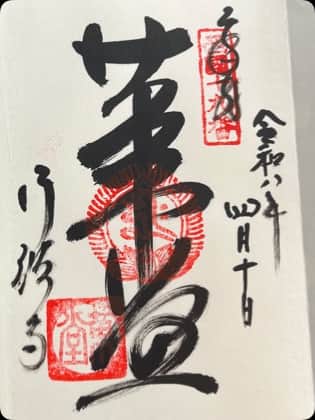 奉拝
令和八年
四月十日
革堂
行願寺